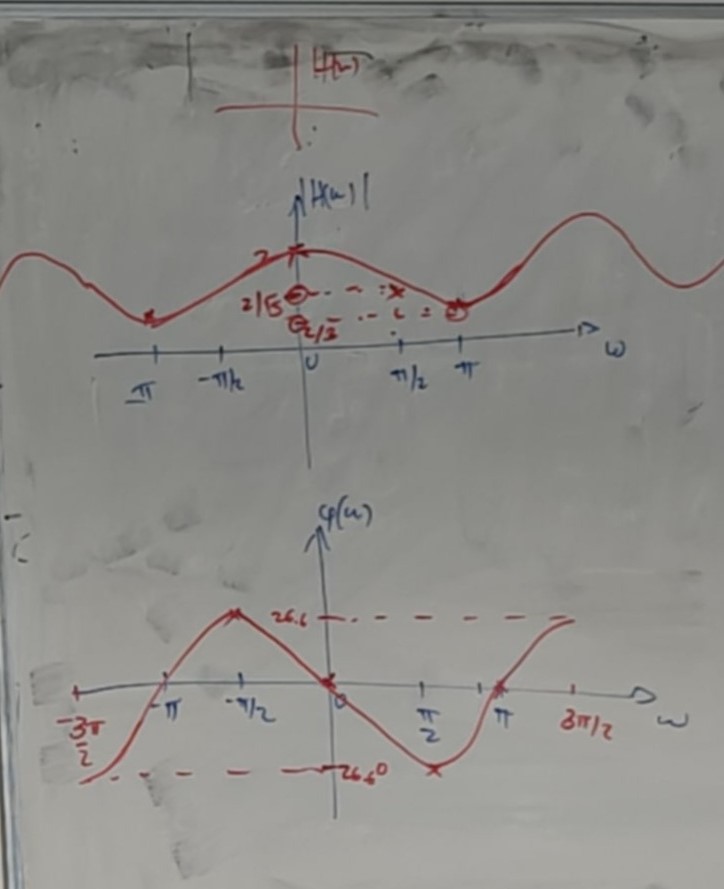 H(ω)
|H(ω)|
2
2/√5
2/3
-π -π/2 0 π/2 π ω
φ(ω)
26.6
-3π/2 -π -π/2 0 π/2 π 3π/2 ω
-26.6°